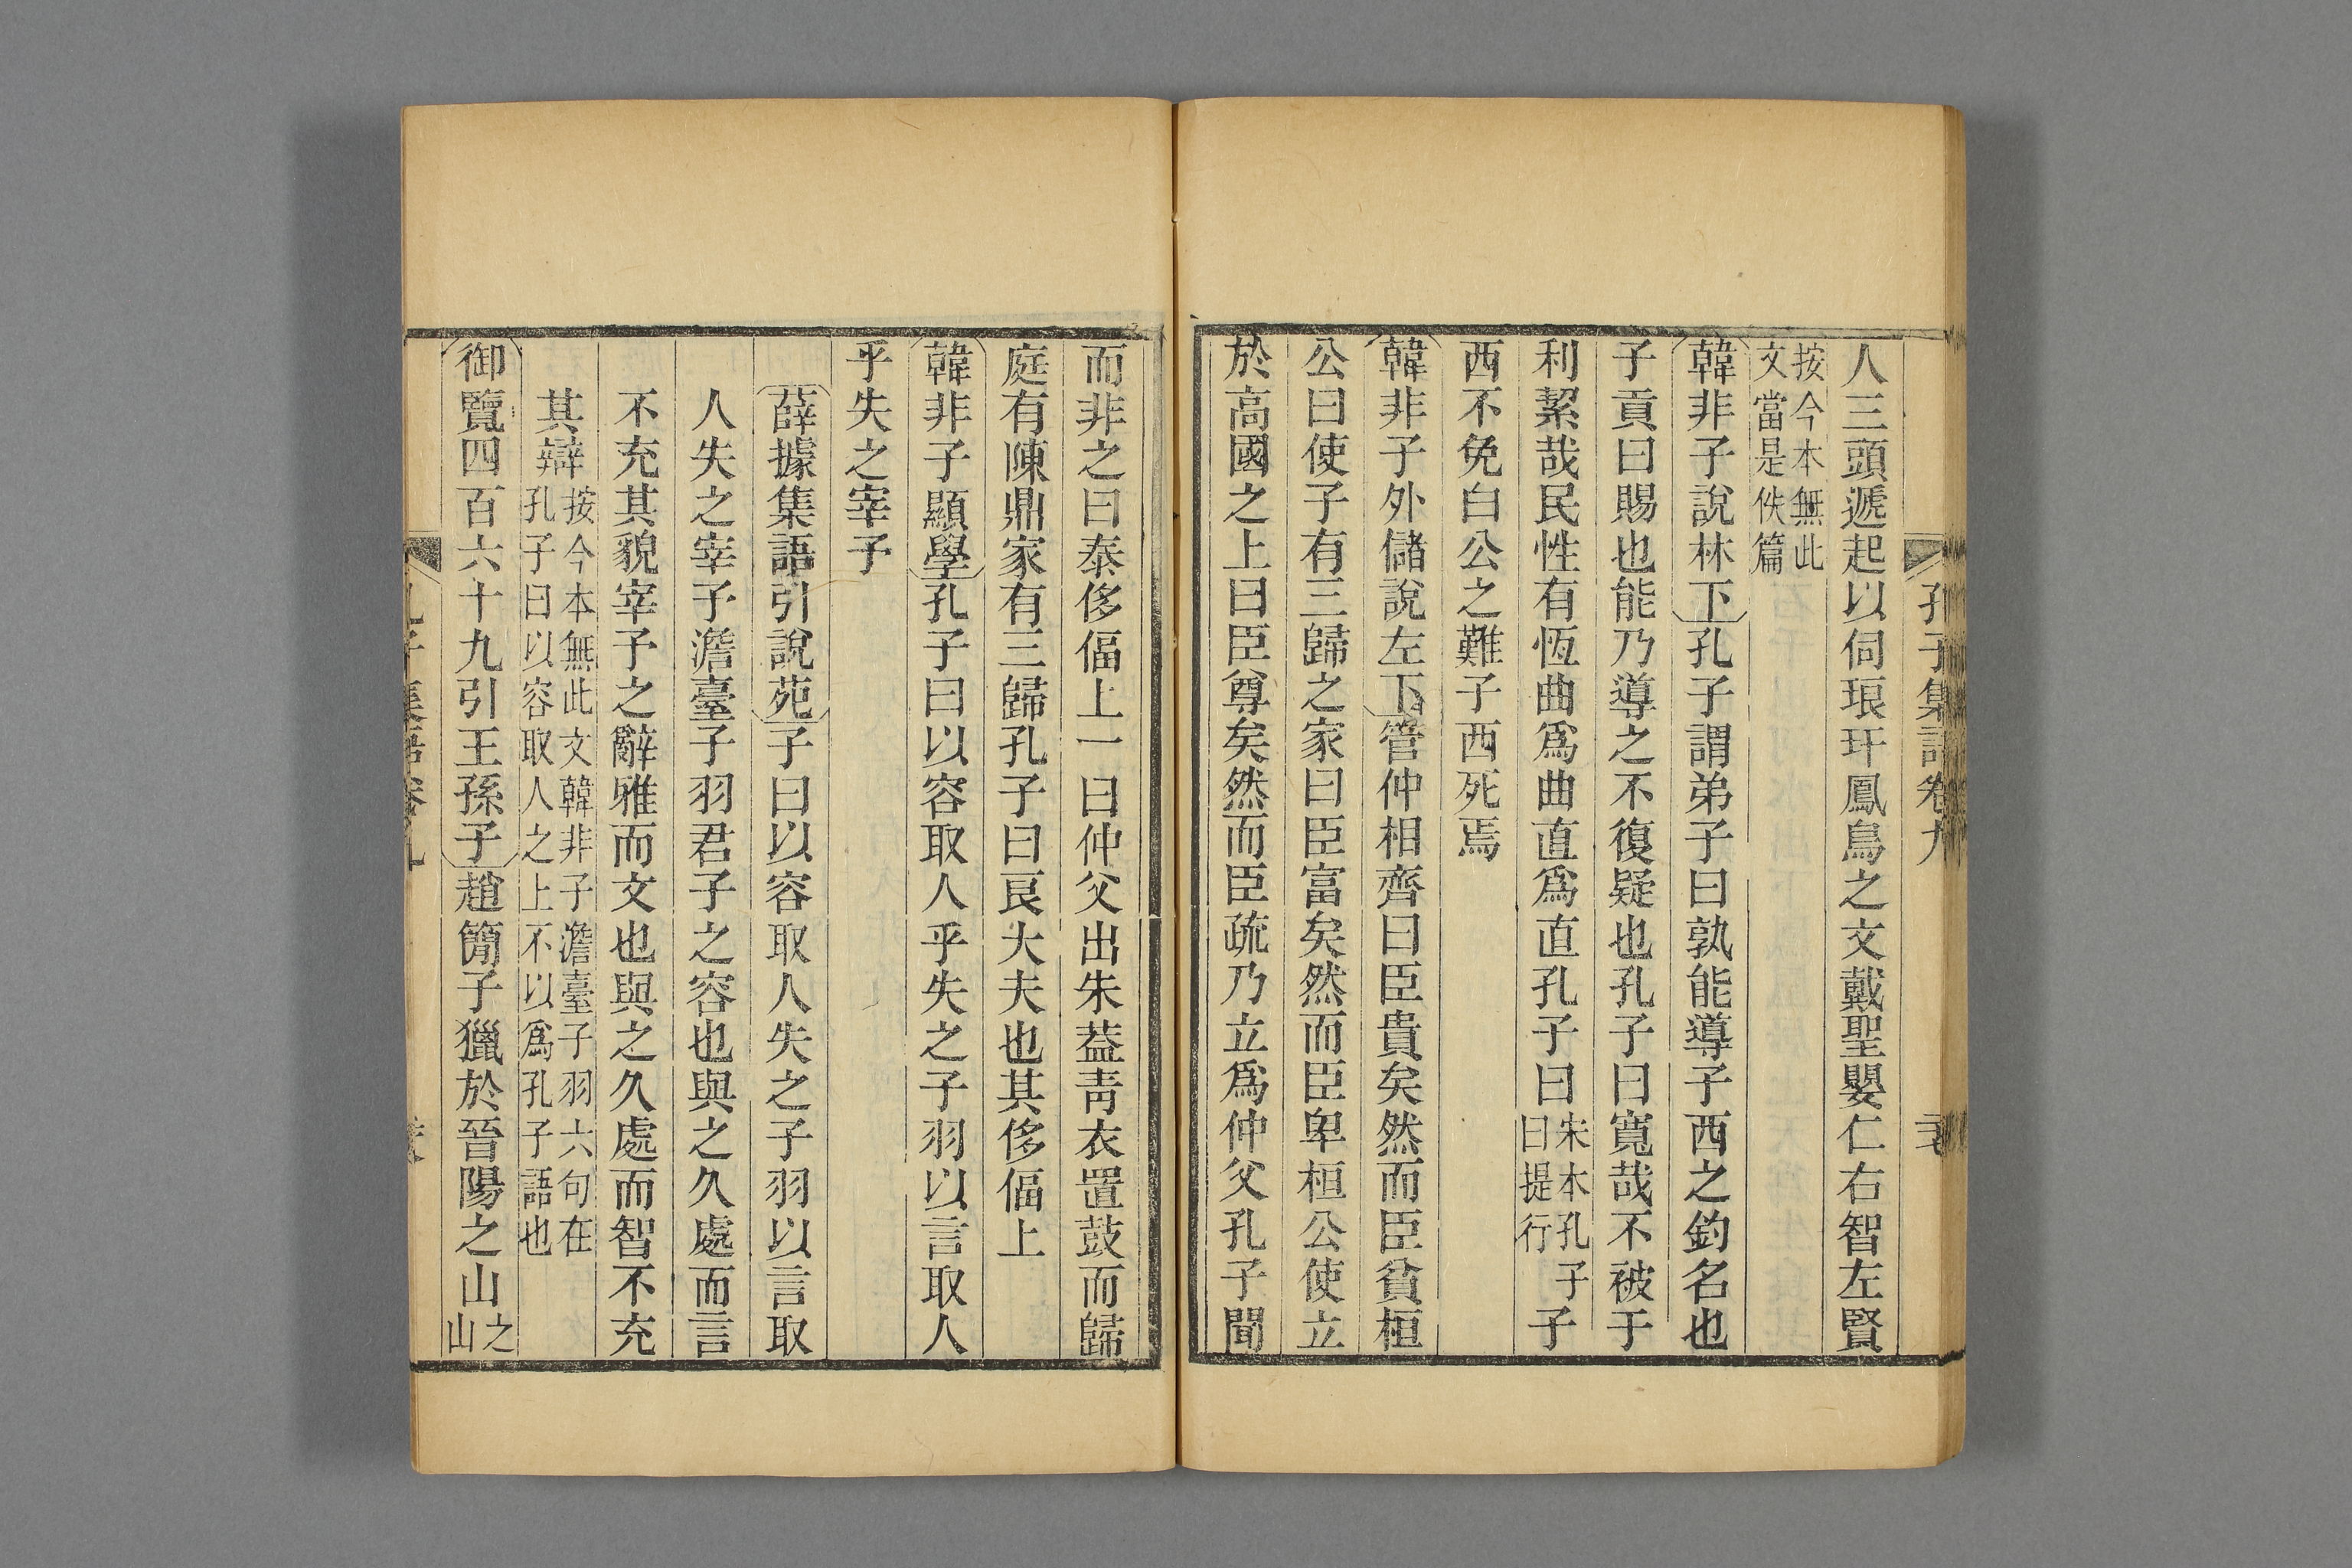 孔子集語卷九
人三頭遞起以伺琅玕鳳鳥之文戴聖嬰仁右智左賢
按今本無此
文當是佚篇
韓非子說林下孔子謂弟子曰孰能導子西之釣名也
子貢曰賜也能乃導之不復疑也孔子曰寬哉不被于
利絜哉民性有恆曲爲曲直爲直孔子曰宋本孔子曰提行子
西不免白公之難子西死焉
韓非子外儲說左下管仲相齊曰臣貴矣然而臣貧桓
公曰使子有三歸之家曰臣富矣然而臣卑桓公使立
於高國之上曰臣尊矣然而臣疏乃立爲仲父孔子聞
而非之曰泰侈偪上一曰仲父出朱蓋青衣置鼓而歸
庭有陳鼎家有三歸孔子曰良大夫也其侈偪上
韓非子顯學孔子曰以容取人乎失之子羽以言取人
乎失之宰予
薛據集語引說苑子曰以容取人失之子羽以言取
人失之宰予澹臺子羽君子之容也與之久處而言
不充其貌宰予之辭雅而文也與之久處而智不充
其辯按今本無此文韓非子澹臺子羽六句在
孔子曰以容取人之上不以爲孔子語也
御覽四百六十九引王孫子趙簡子獵於晉陽之山之
山